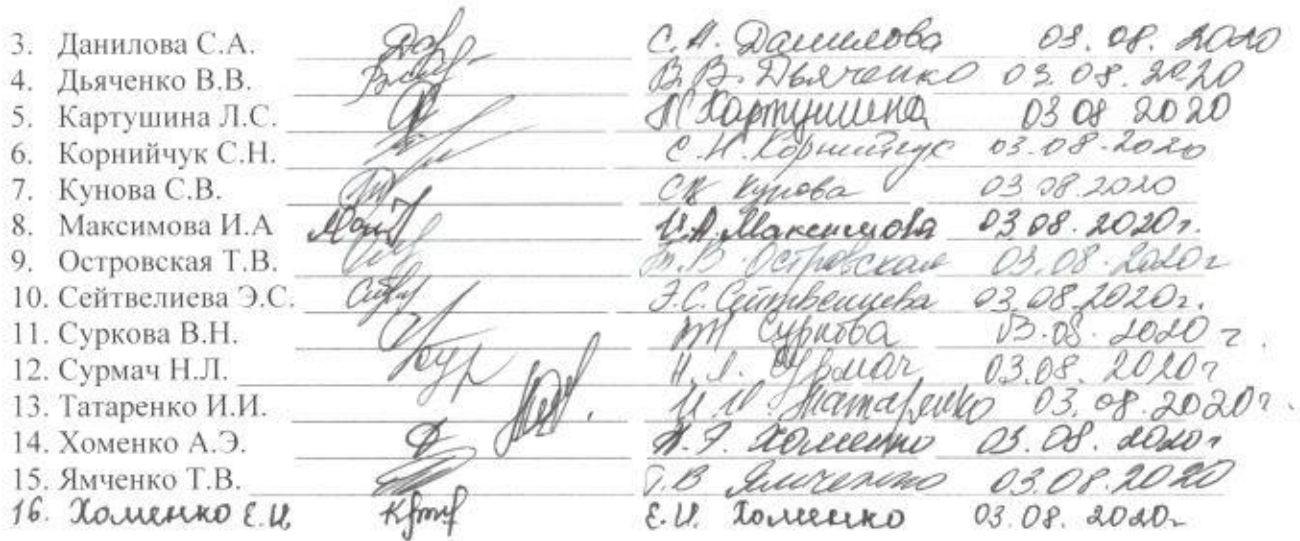 3. Данилова С.А. С.А. Данилова 03.08.2020
4. Дьяченко В.В. В.В. Дьяченко 03.08.2020
5. Картушина Л.С. Картушина 03 08 2020
6. Корнийчук С.Н. С.Н. Корнийчук 03.08.2020
7. Кунова С.В. Кунова 03 08.2020
8. Максимова И.А И.А. Максимова 03 08.2020г.
9. Островская Т.В. Т.В. Островская 03.08.2020г
10. Сейтвелиева Э.С. Э.С. Сейтвелиева 03.08.2020г.
11. Суркова В.Н. Суркова 03.08.2020г.
12. Сурмач Н.Л. Н.Л. Сурмач 03.08.2020г
13. Татаренко И.И. И.И. Татаренко 03.08.2020г.
14. Хоменко А.Э. А.Э. Хоменко 03.08.2020г
15. Ямченко Т.В. Т.В Ямченко 03.08.2020
16. Хоменко Е.И. Е.И. Хоменко 03.08.2020